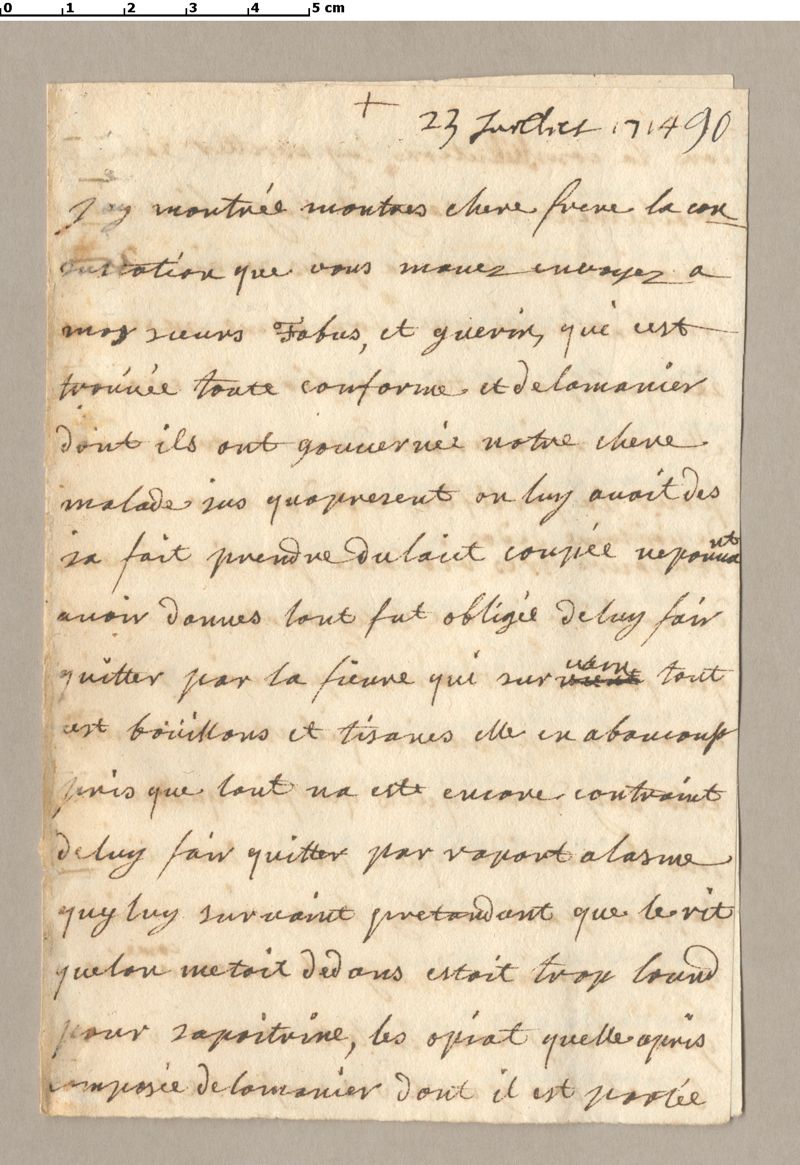 0 1 2 3 4 5 cm
+
23 Juellies 1714 90
J'ay montrée montres chere frere la con
sultation que vous mavez envoyez a
mos sieurs Fabus, et guerin, qui cest
trouuée toute conforme et delamanier
dont ils ont gouuernée notre chere
malade jus quapresent on luy auoit des
ja fait prendre dulaict coupée ne pouuant
auoir donnes lont fut obligée deluy fair
quitter par la fieure qui suruain tout
est boüillons et tisanes elle en abaucoup
pris que lont na este encore contraint
deluy fair quitter par raport alasme
quy luy suruaint pretandant que le rit
quelon metoit dedans estoit trop lourd
pour sapoitrine, les opiat quelle apris
composée delamanier dont il est parlée